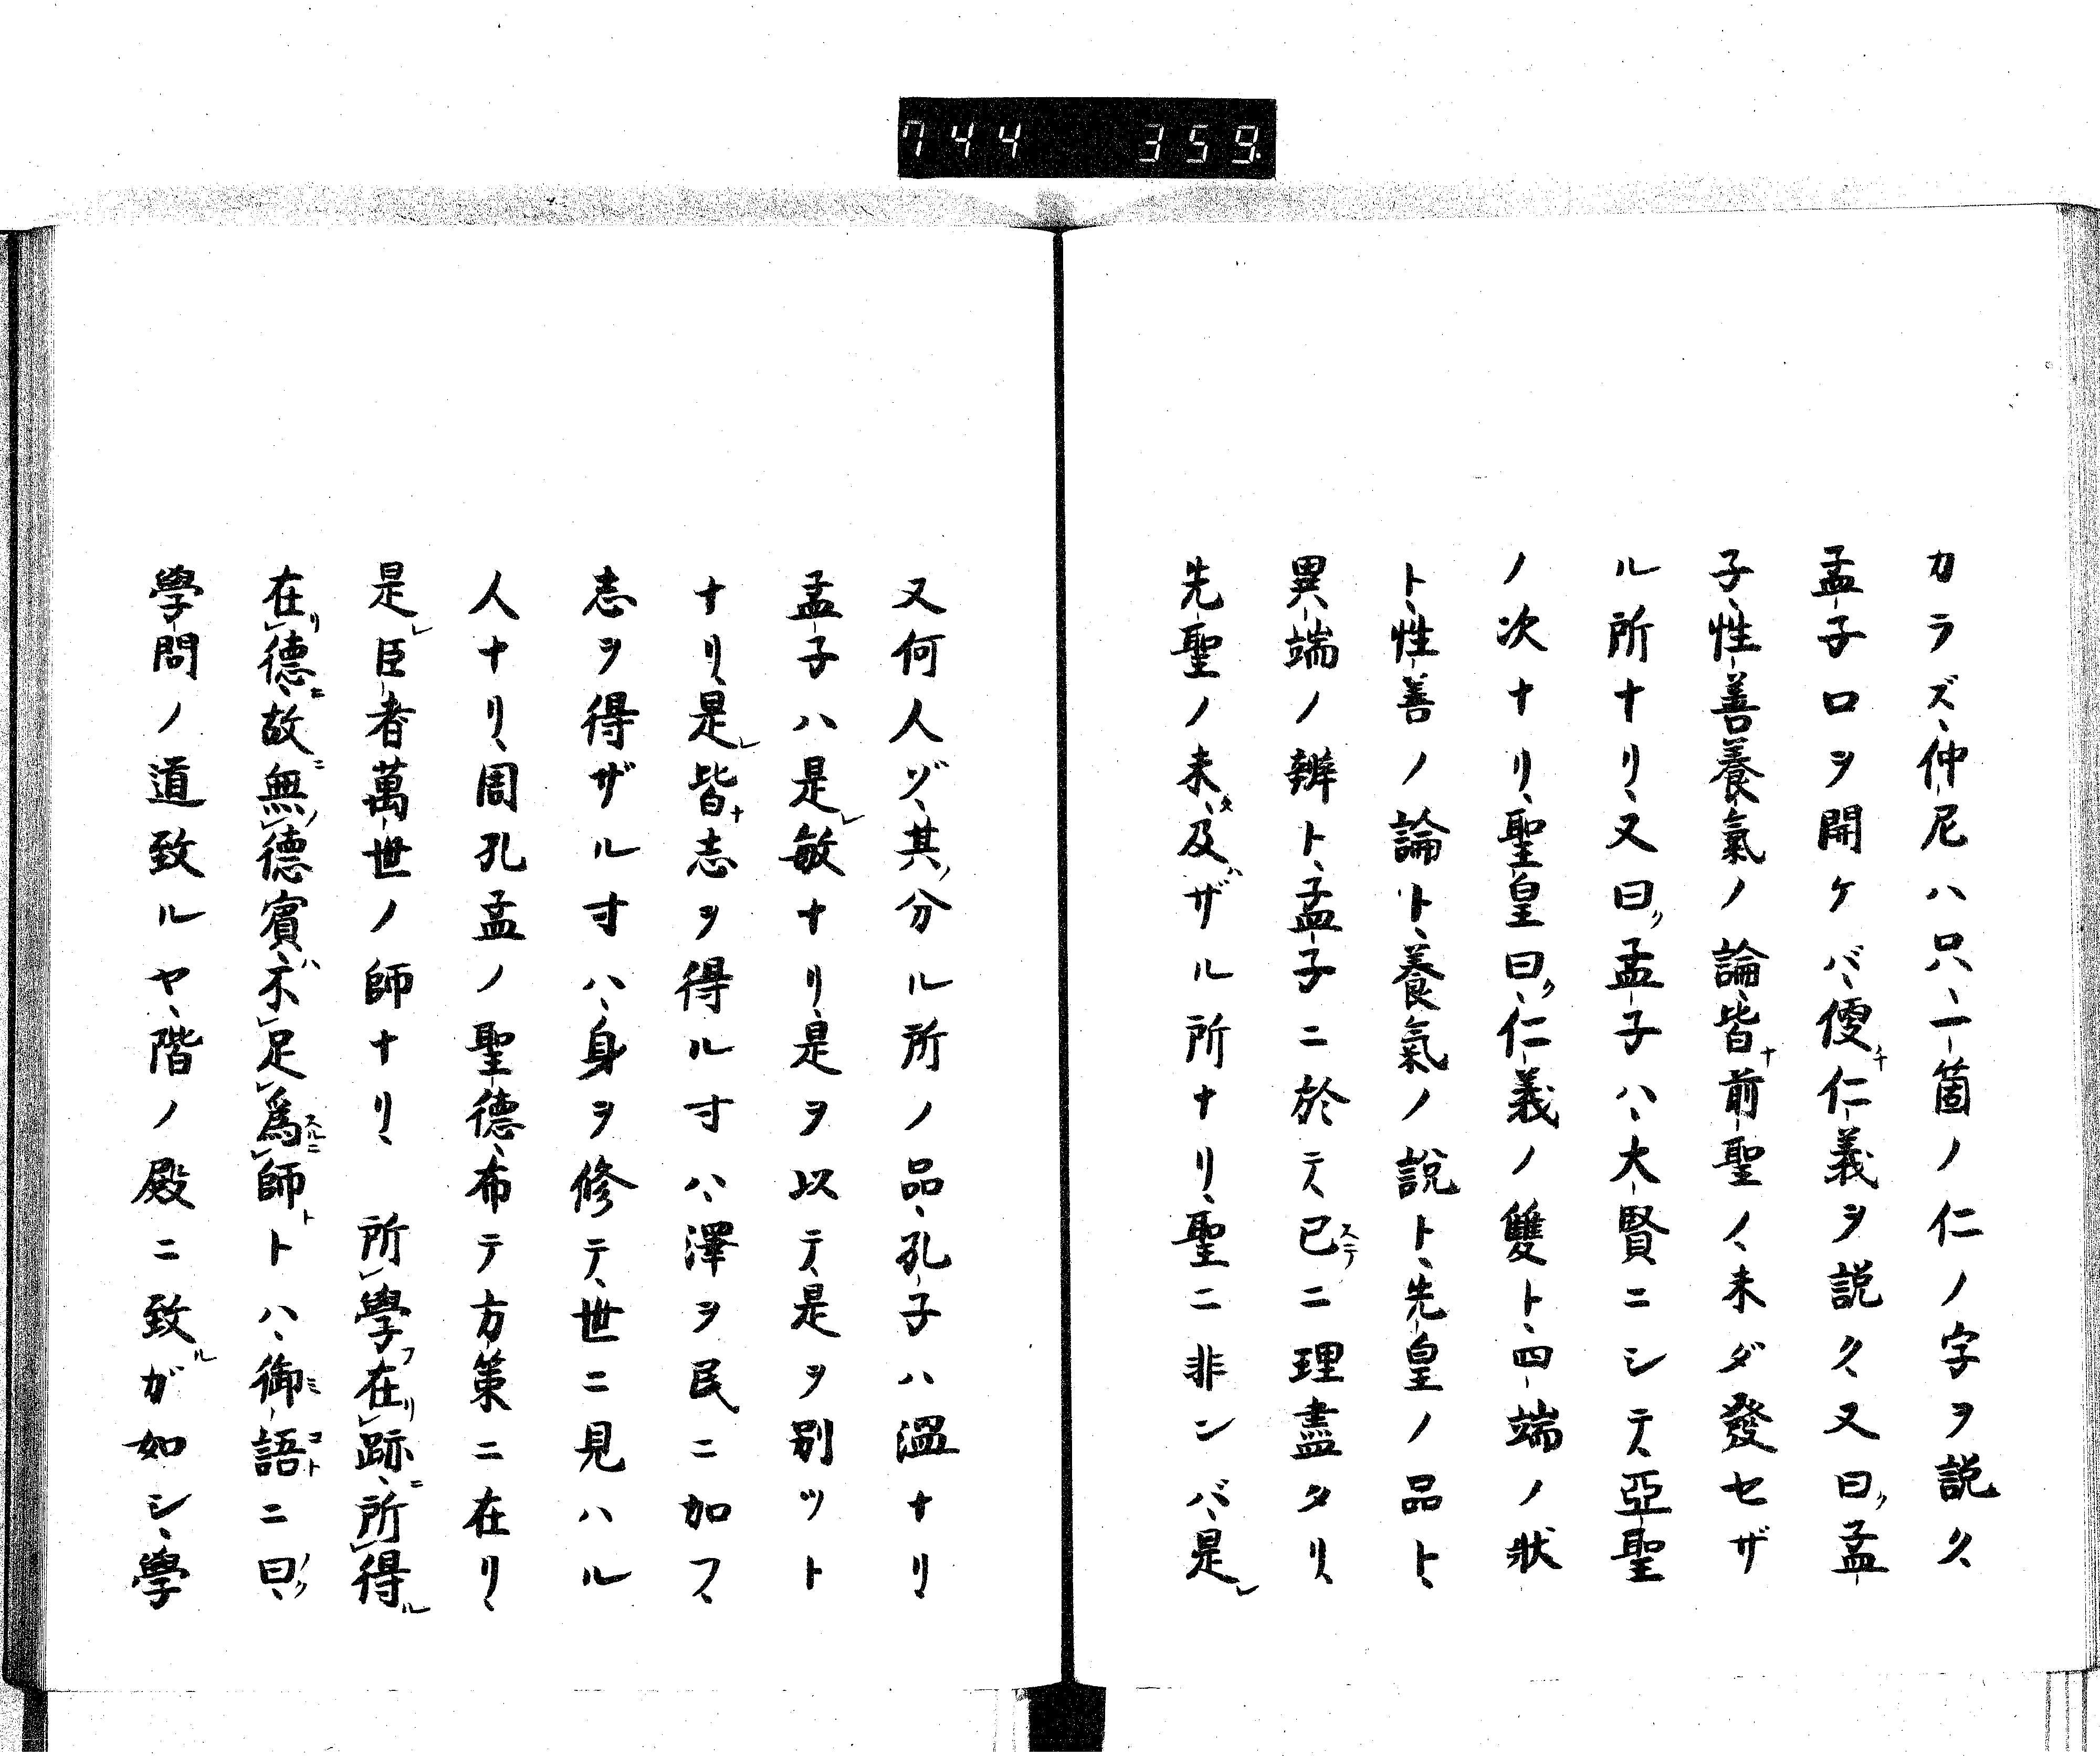 744 359.
カラズ、仲尼ハ只、一箇ノ仁ノ字ヲ説ク、
孟子口ヲ開ケバ、便チ仁義ヲ説ク、又曰ク、孟
子、性善養氣ノ論、皆ナ前聖ノ、未ダ發セザ
ル所ナリ、又曰ク、孟子ハ、大賢ニシテ、亞聖
ノ次ナリ、聖皇曰ク、仁義ノ雙ト、四端ノ狀
ト、性善ノ論ト、養氣ノ說ト、先皇ノ品ト、
異端ノ辨ト、孟子ニ於テ、已スデニ理盡タリ、
先聖ノ未、タ及ハザル所ナリ、聖ニ非ンバ、是レ
又何人ゾ、其ノ分ル所ノ品、孔子ハ溫ナリ、
孟子ハ是レ敏ナリ、是ヲ以テ、是ヲ別ット
ナリ、是レ皆ナ志ヲ得ル寸ハ、澤ヲ民ニ加フ、
志ヲ得ザル寸ハ、身ヲ修テ、世ニ見ハル
人ナリ、周孔孟ノ聖德、布テ方策ニ在リ、
是レ臣者萬世ノ師ナリ、 所學フ在リ跡ニ、所得ル
在リ德ニ、故ニ無ノ德賓ハ、不足爲スルニ師ト トハ、御ミ語コトニ曰ノク、
學問ノ道致ルヤ、階ノ殿ニ致ルガ如シ、學